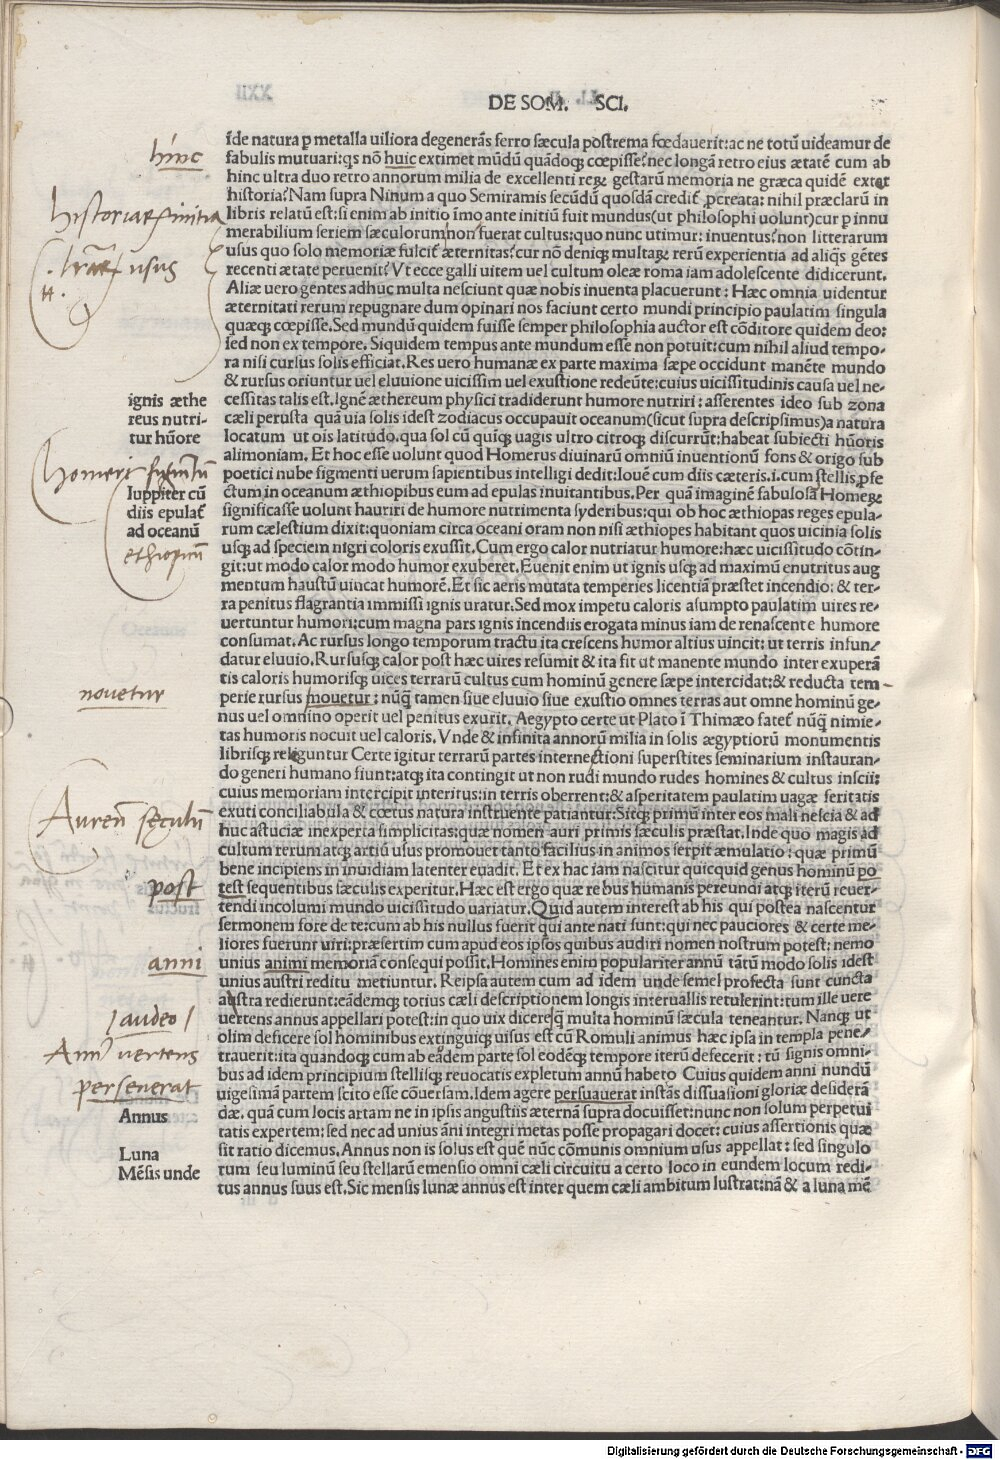 DE SOM. SCI.
hinc
īde natura p metalla uiliora degenerās ferro sæcula postrema fœdauerit:ac ne totū uideamur de
fabulis mutuari:qs nō huic extimet mūdū quādoqȝ cœpisse?nec longā retro eius ætatē cum ab
hinc ultra duo retro annorum milia de excellenti reꝝ gestarū memoria ne græca quidē extet
historia?Nam supra Ninum a quo Semiramis secūdū quosdā credit̄ ꝓcreata:nihil præclarū in
libris relatū est:si enim ab initio īmo ante initiū fuit mundus(ut philosophi uolunt)cur p innu
merabilium seriem sæculorum non fuerat cultus:quo nunc utimur:inuentus?non litterarum
usus quo solo memoriæ fulcit̄ æternitas?cur nō deniqȝ multaꝝ rerū experientia ad aliqs gētes
recenti ætate peruenit?Vt ecce galli uitem uel cultum oleæ roma iam adolescente didicerunt.
Aliæ uero gentes adhuc multa nesciunt quæ nobis inuenta placuerunt:Hæc omnia uidentur
æternitati rerum repugnare dum opinari nos faciunt certo mundi principio paulatim singula
quæqȝ cœpisse.Sed mundū quidem fuisse semper philosophia auctor est cōditore quidem deo:
sed non ex tempore.Siquidem tempus ante mundum esse non potuit:cum nihil aliud tempo-
ra nisi cursus solis efficiat.Res uero humanæ ex parte maxima sæpe occidunt manēte mundo
& rursus oriuntur uel eluuione uicissim uel exustione redeūte:cuius uicissitudinis causa uel ne-
cessitas talis est.Ignē æthereum physici tradiderunt humore nutriri:asserentes ideo sub zona
cæli perusta quā uia solis idest zodiacus occupauit oceanum(sicut supra descripsimus)a natura
locatum ut ois latitudo.qua sol cū quīqȝ uagis ultro citroqȝ discurrūt:habeat subiecti hūoris
alimoniam.Et hoc esse uolunt quod Homerus diuinarū omniū inuentionū fons & origo sub
poetici nube figmenti uerum sapientibus intelligi dedit:Iouē cum diis cæteris.i.cum stellis ꝓfe
ctum in oceanum æthiopibus eum ad epulas inuitantibus.Per quā imaginē fabulosā Homeꝝ
significasse uolunt hauriri de humore nutrimenta syderibus:qui ob hoc æthiopas reges epula-
rum cælestium dixit:quoniam circa oceani oram non nisi æthiopes habitant quos uicinia solis
usqȝ ad speciem nigri coloris exussit.Cum ergo calor nutriatur humore:hæc uicissitudo cōtin-
git:ut modo calor modo humor exuberet.Euenit enim ut ignis usqȝ ad maximū enutritus aug
mentum haustū uincat humorē.Et sic aeris mutata temperies licentiā præstet incendio:& ter-
ra penitus flagrantia immissi ignis uratur.Sed mox impetu caloris asumpto paulatim uires re-
uertuntur humori:cum magna pars ignis incendiis erogata minus iam de renascente humore
consumat.Ac rursus longo temporum tractu ita crescens humor altius uincit:ut terris infun-
datur eluuio.Rursusqȝ calor post hæc uires resumit & ita fit ut manente mundo inter exuperā
tis caloris humorisqȝ uices terrarū cultus cum hominū genere sæpe intercidat:& reducta tem-
perie rursus mouetur:nūq̄ tamen siue eluuio siue exustio omnes terras aut omne hominū ge-
nus uel omnino operit uel penitus exurit.Aegypto certe ut Plato ī Thimæo fatet̄ nūq̄ nimie-
tas humoris nocuit uel caloris.Vnde & infinita annorū milia in solis ægyptiorū monumentis
librisqȝ releguntur Certe igitur terrarū partes internectioni superstites seminarium instauran-
do generi humano fiunt:atqȝ ita contingit ut non rudi mundo rudes homines & cultus inscii:
cuius memoriam intercipit interitus:in terris oberrent:& asperitatem paulatim uagæ feritatis
exuti conciliabula & cœtus natura instruente patiantur:Sitqȝ primū inter eos mali nescia & ad
huc astuciæ inexperta simplicitas:quæ nomen auri primis sæculis præstat.Inde quo magis ad
cultum rerum atqȝ artiū usus promouet tanto facilius in animos serpit æmulatio:quæ primū
bene incipiens in inuidiam latenter euadit.Et ex hac iam nascitur quicquid genus hominū po
test sequentibus sæculis experitur.Hæc est ergo quæ rebus humanis pereundi atqȝ iterū reuer-
tendi incolumi mundo uicissitudo uariatur.Quid autem interest ab his qui postea nascentur
sermonem fore de te:cum ab his nullus fuerit qui ante nati sunt:qui nec pauciores & certe me-
liores fuerunt uiri:præsertim cum apud eos ipsos quibus audiri nomen nostrum potest:nemo
unius animi memoriā consequi possit.Homines enim populariter annū tātū modo solis idest
unius austri reditu metiuntur.Reipsa autem cum ad idem unde semel profecta sunt cuncta
austra redierunt:eādemqȝ totius cæli descriptionem longis interuallis retulerint:tum ille uere
uertens annus appellari potest:in quo uix dicere q̄ multa hominū sæcula teneantur.Nanqȝ ut
olim deficere sol hominibus extinguiqȝ uisus est cū Romuli animus hæc ipsa in templa pene-
trauerit:ita quandoqȝ cum ab eādem parte sol eodēqȝ tempore iterū defecerit:tū signis omni-
bus ad idem principium stellisqȝ reuocatis expletum annū habeto Cuius quidem anni nundū
uigesimā partem scito esse cōuersam.Idem agere persuauerat instās dissuasioni gloriæ desiderā
dæ.quā cum locis artam ne in ipsis angustiis æternā supra docuisset:nunc non solum perpetui
tatis expertem:sed nec ad unius āni integri metas posse propagari docet:cuius assertionis quæ
sit ratio dicemus.Annus non is solus est quē nūc cōmunis omnium usus appellat:sed singulo
rum seu luminū seu stellarū emensio omni cæli circuitu a certo loco in eundem locum redi-
tus annus suus est.Sic mensis lunæ annus est inter quem cæli ambitum lustrat:nā & a luna mē
historiarꝝ initia
usus
ignis æthe
reus nutri-
tur hūore
homeri figmētū
Iuppiter cū
diis epulat̄
ad oceanū
ethiopum
novetur
Aureū sęculū
post
anni
audeo
Ann9 vertens
perseuerat
Annus
Luna
Mēsis unde
Digitalisierung gefördert durch die Deutsche Forschungsgemeinschaft - DFG